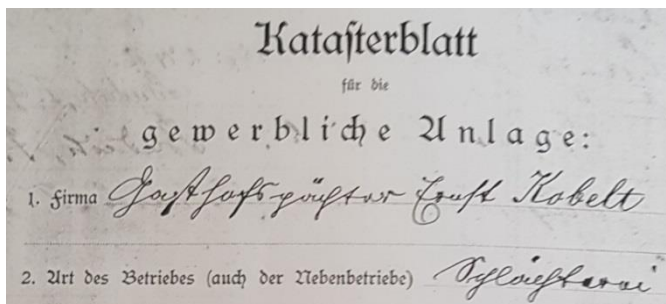 Katasterblatt
für die
gewerbliche Anlage:
1. Firma Gasthofspächter Ernst Kobelt
2. Art des Betriebes (auch der Nebenbetriebe) Schlächterei